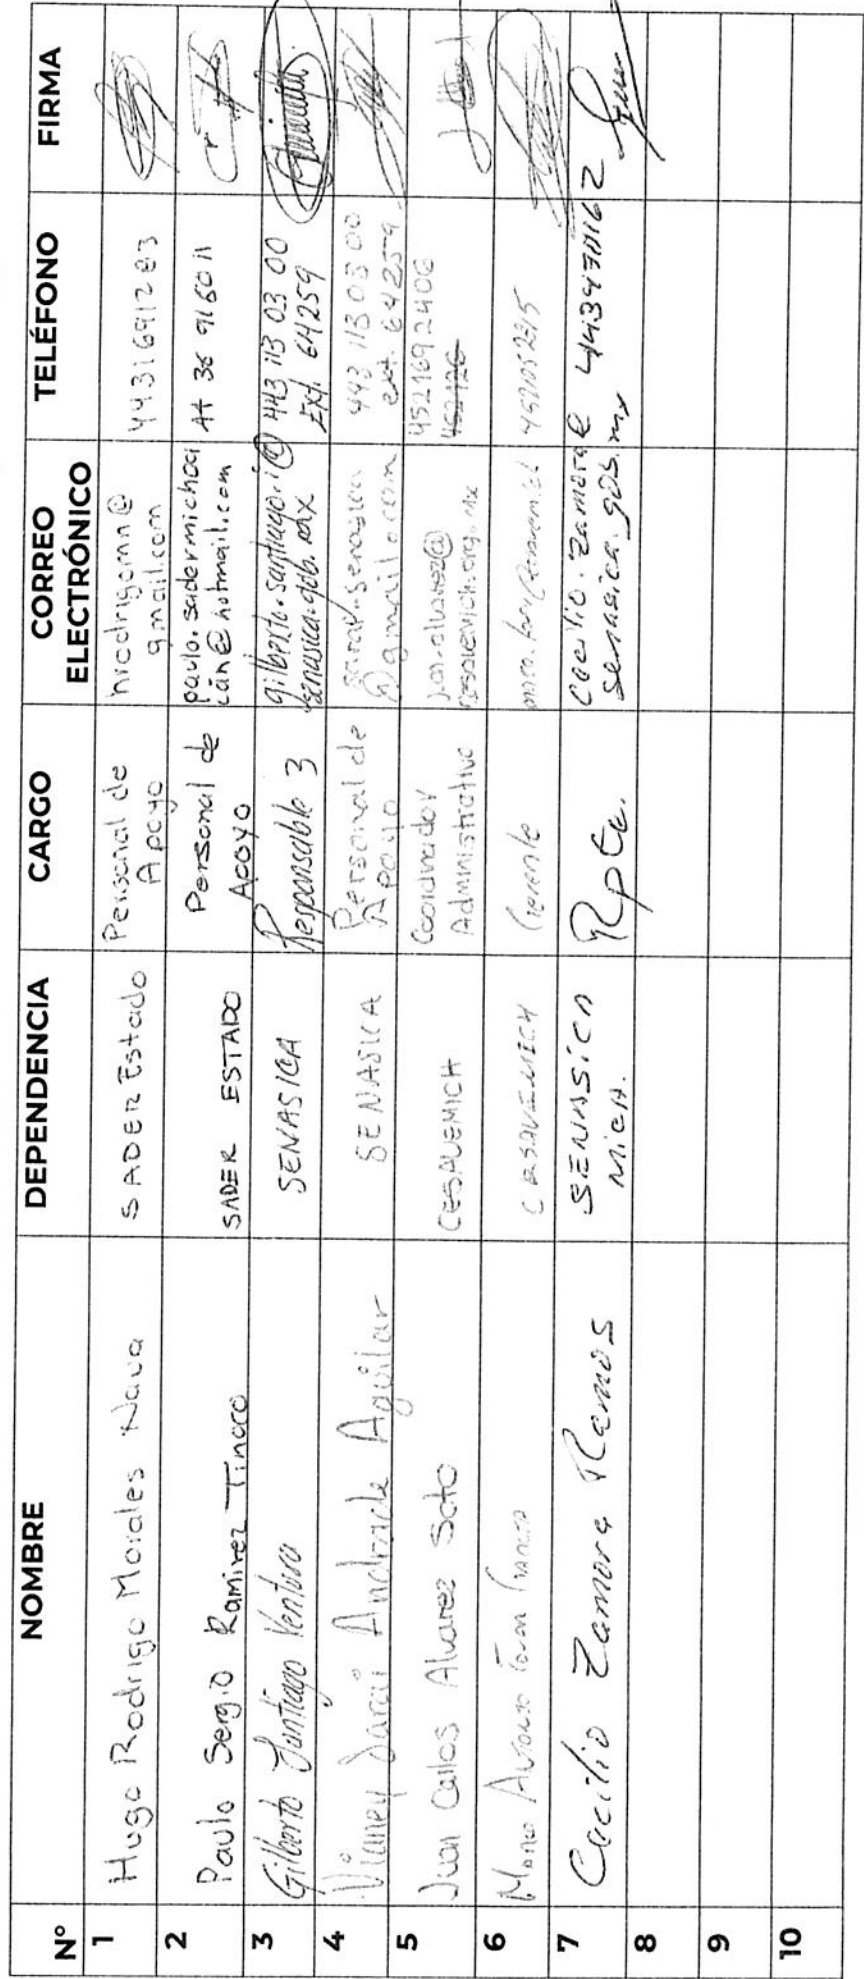 N° NOMBRE DEPENDENCIA CARGO CORREO ELECTRÓNICO TELÉFONO FIRMA
1 Hugo Rodrigo Morales Nava SADER Estado Personal de Apoyo hrodrigomn@gmail.com 4431691283
2 Paulo Sergio Ramirez Tinoco SADER ESTADO Personal de Apoyo paulo.sadermichoacán@hotmail.com 44 36 916011
3 Gilberto Santiago Ventura SENASICA Responsable 3 gilberto.santiago.i@senasica.gob.mx 443 113 03 00 Ext. 64259
4 Vianey Darai Andrade Aguilar SENASICA Personal de Apoyo @gmail.com 443 113 03 00 ext. 64259
5 Juan Carlos Alvarez Soto CESAVEMICH Coordinador Administrativo juan.alvarez@cesavemich.org.mx 4521692406
6 Alfonso CESAVEMICH Gerente
7 Cecilio Zamora Ramos SENASICA MICH. Rpte. Cecilio.Zamora@senasica.gob.mx
8
9
10